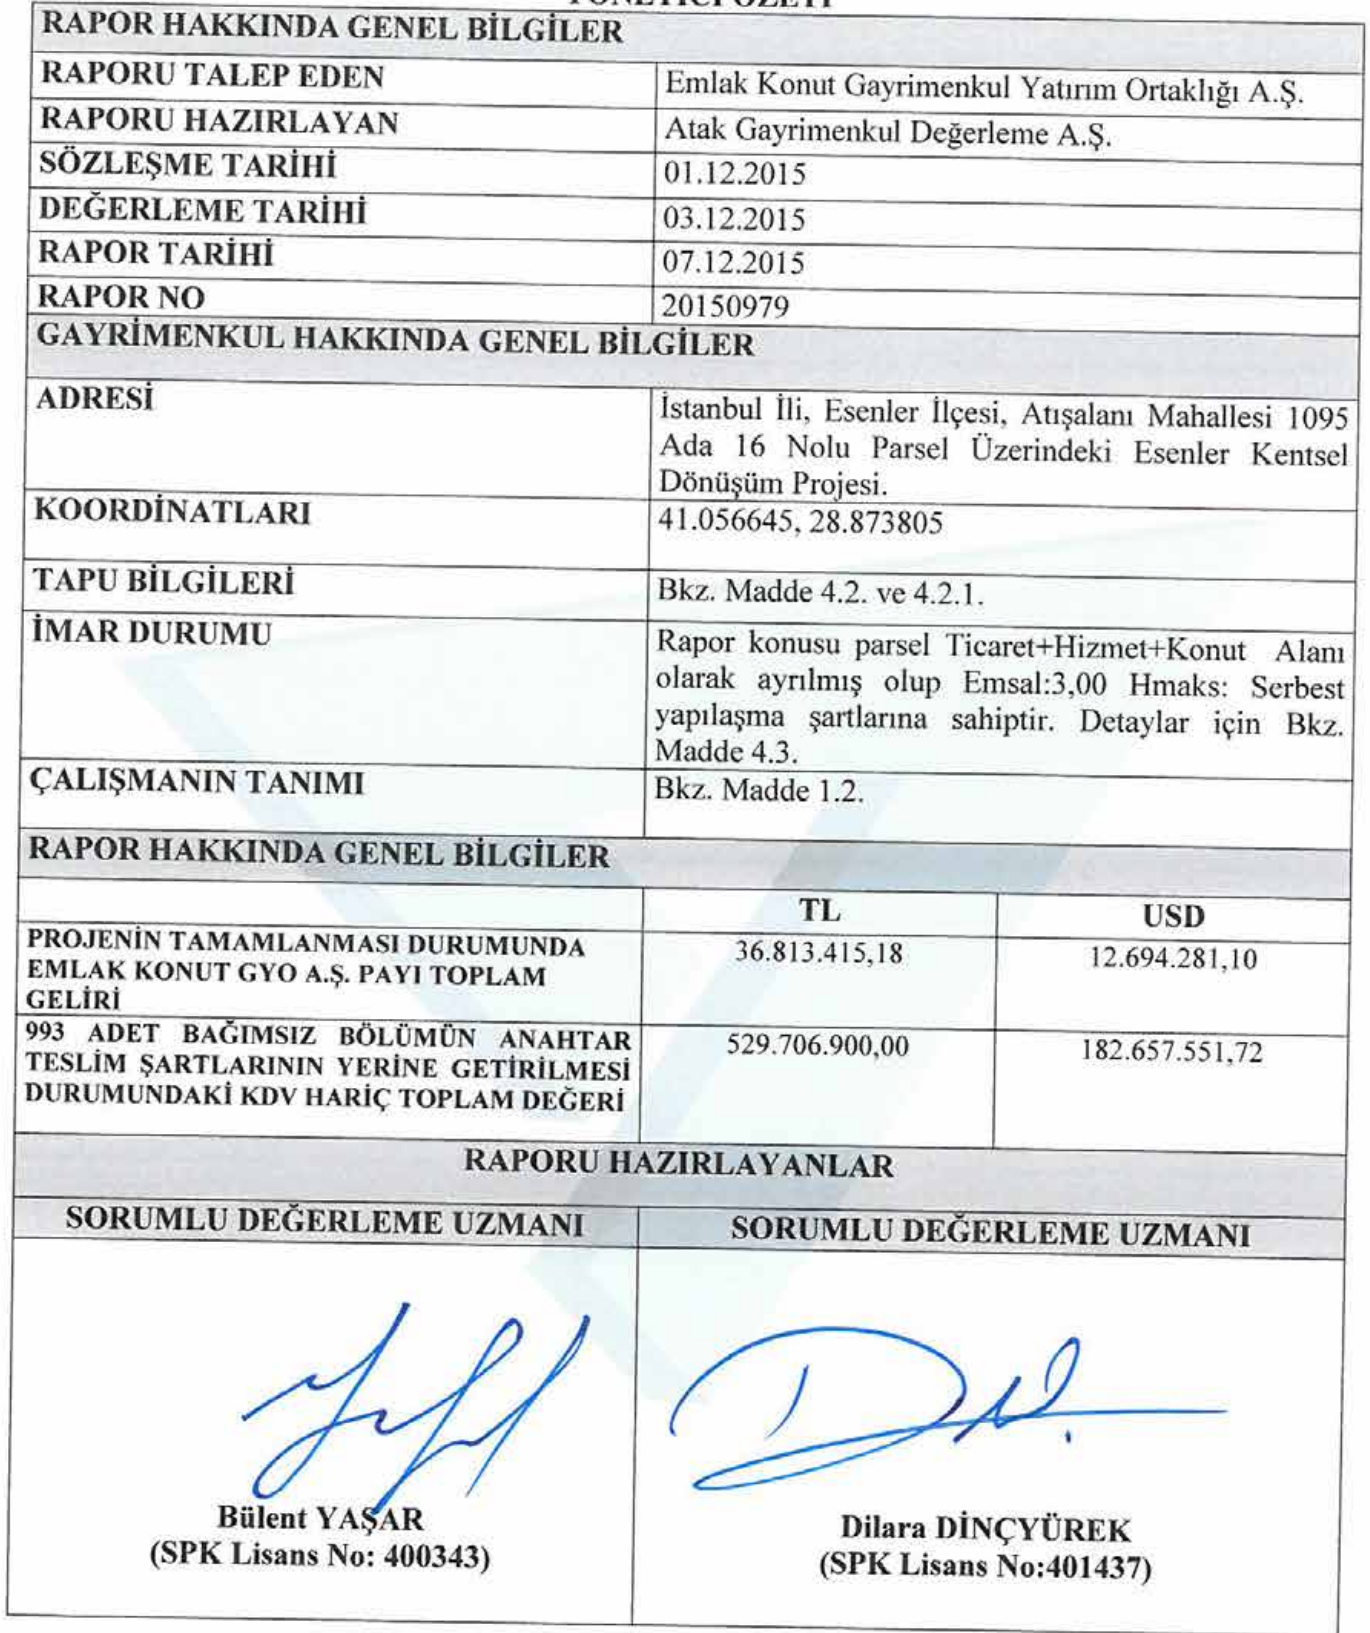 YÖNETİCİ ÖZETİ
RAPOR HAKKINDA GENEL BİLGİLER
RAPORU TALEP EDEN
Emlak Konut Gayrimenkul Yatırım Ortaklığı A.Ş.
RAPORU HAZIRLAYAN
Atak Gayrimenkul Değerleme A.Ş.
SÖZLEŞME TARİHİ
01.12.2015
DEĞERLEME TARİHİ
03.12.2015
RAPOR TARİHİ
07.12.2015
RAPOR NO
20150979
GAYRİMENKUL HAKKINDA GENEL BİLGİLER
ADRESİ
İstanbul İli, Esenler İlçesi, Atışalanı Mahallesi 1095
Ada 16 Nolu Parsel Üzerindeki Esenler Kentsel
Dönüşüm Projesi.
KOORDİNATLARI
41.056645, 28.873805
TAPU BİLGİLERİ
Bkz. Madde 4.2. ve 4.2.1.
İMAR DURUMU
Rapor konusu parsel Ticaret+Hizmet+Konut Alanı
olarak ayrılmış olup Emsal:3,00 Hmaks: Serbest
yapılaşma şartlarına sahiptir. Detaylar için Bkz.
Madde 4.3.
ÇALIŞMANIN TANIMI
Bkz. Madde 1.2.
RAPOR HAKKINDA GENEL BİLGİLER
TL
USD
PROJENİN TAMAMLANMASI DURUMUNDA
EMLAK KONUT GYO A.Ş. PAYI TOPLAM
GELİRİ
36.813.415,18
12.694.281,10
993 ADET BAĞIMSIZ BÖLÜMÜN ANAHTAR
TESLİM ŞARTLARININ YERİNE GETİRİLMESİ
DURUMUNDAKİ KDV HARİÇ TOPLAM DEĞERİ
529.706.900,00
182.657.551,72
RAPORU HAZIRLAYANLAR
SORUMLU DEĞERLEME UZMANI
SORUMLU DEĞERLEME UZMANI
Bülent YAŞAR
(SPK Lisans No: 400343)
Dilara DİNÇYÜREK
(SPK Lisans No:401437)